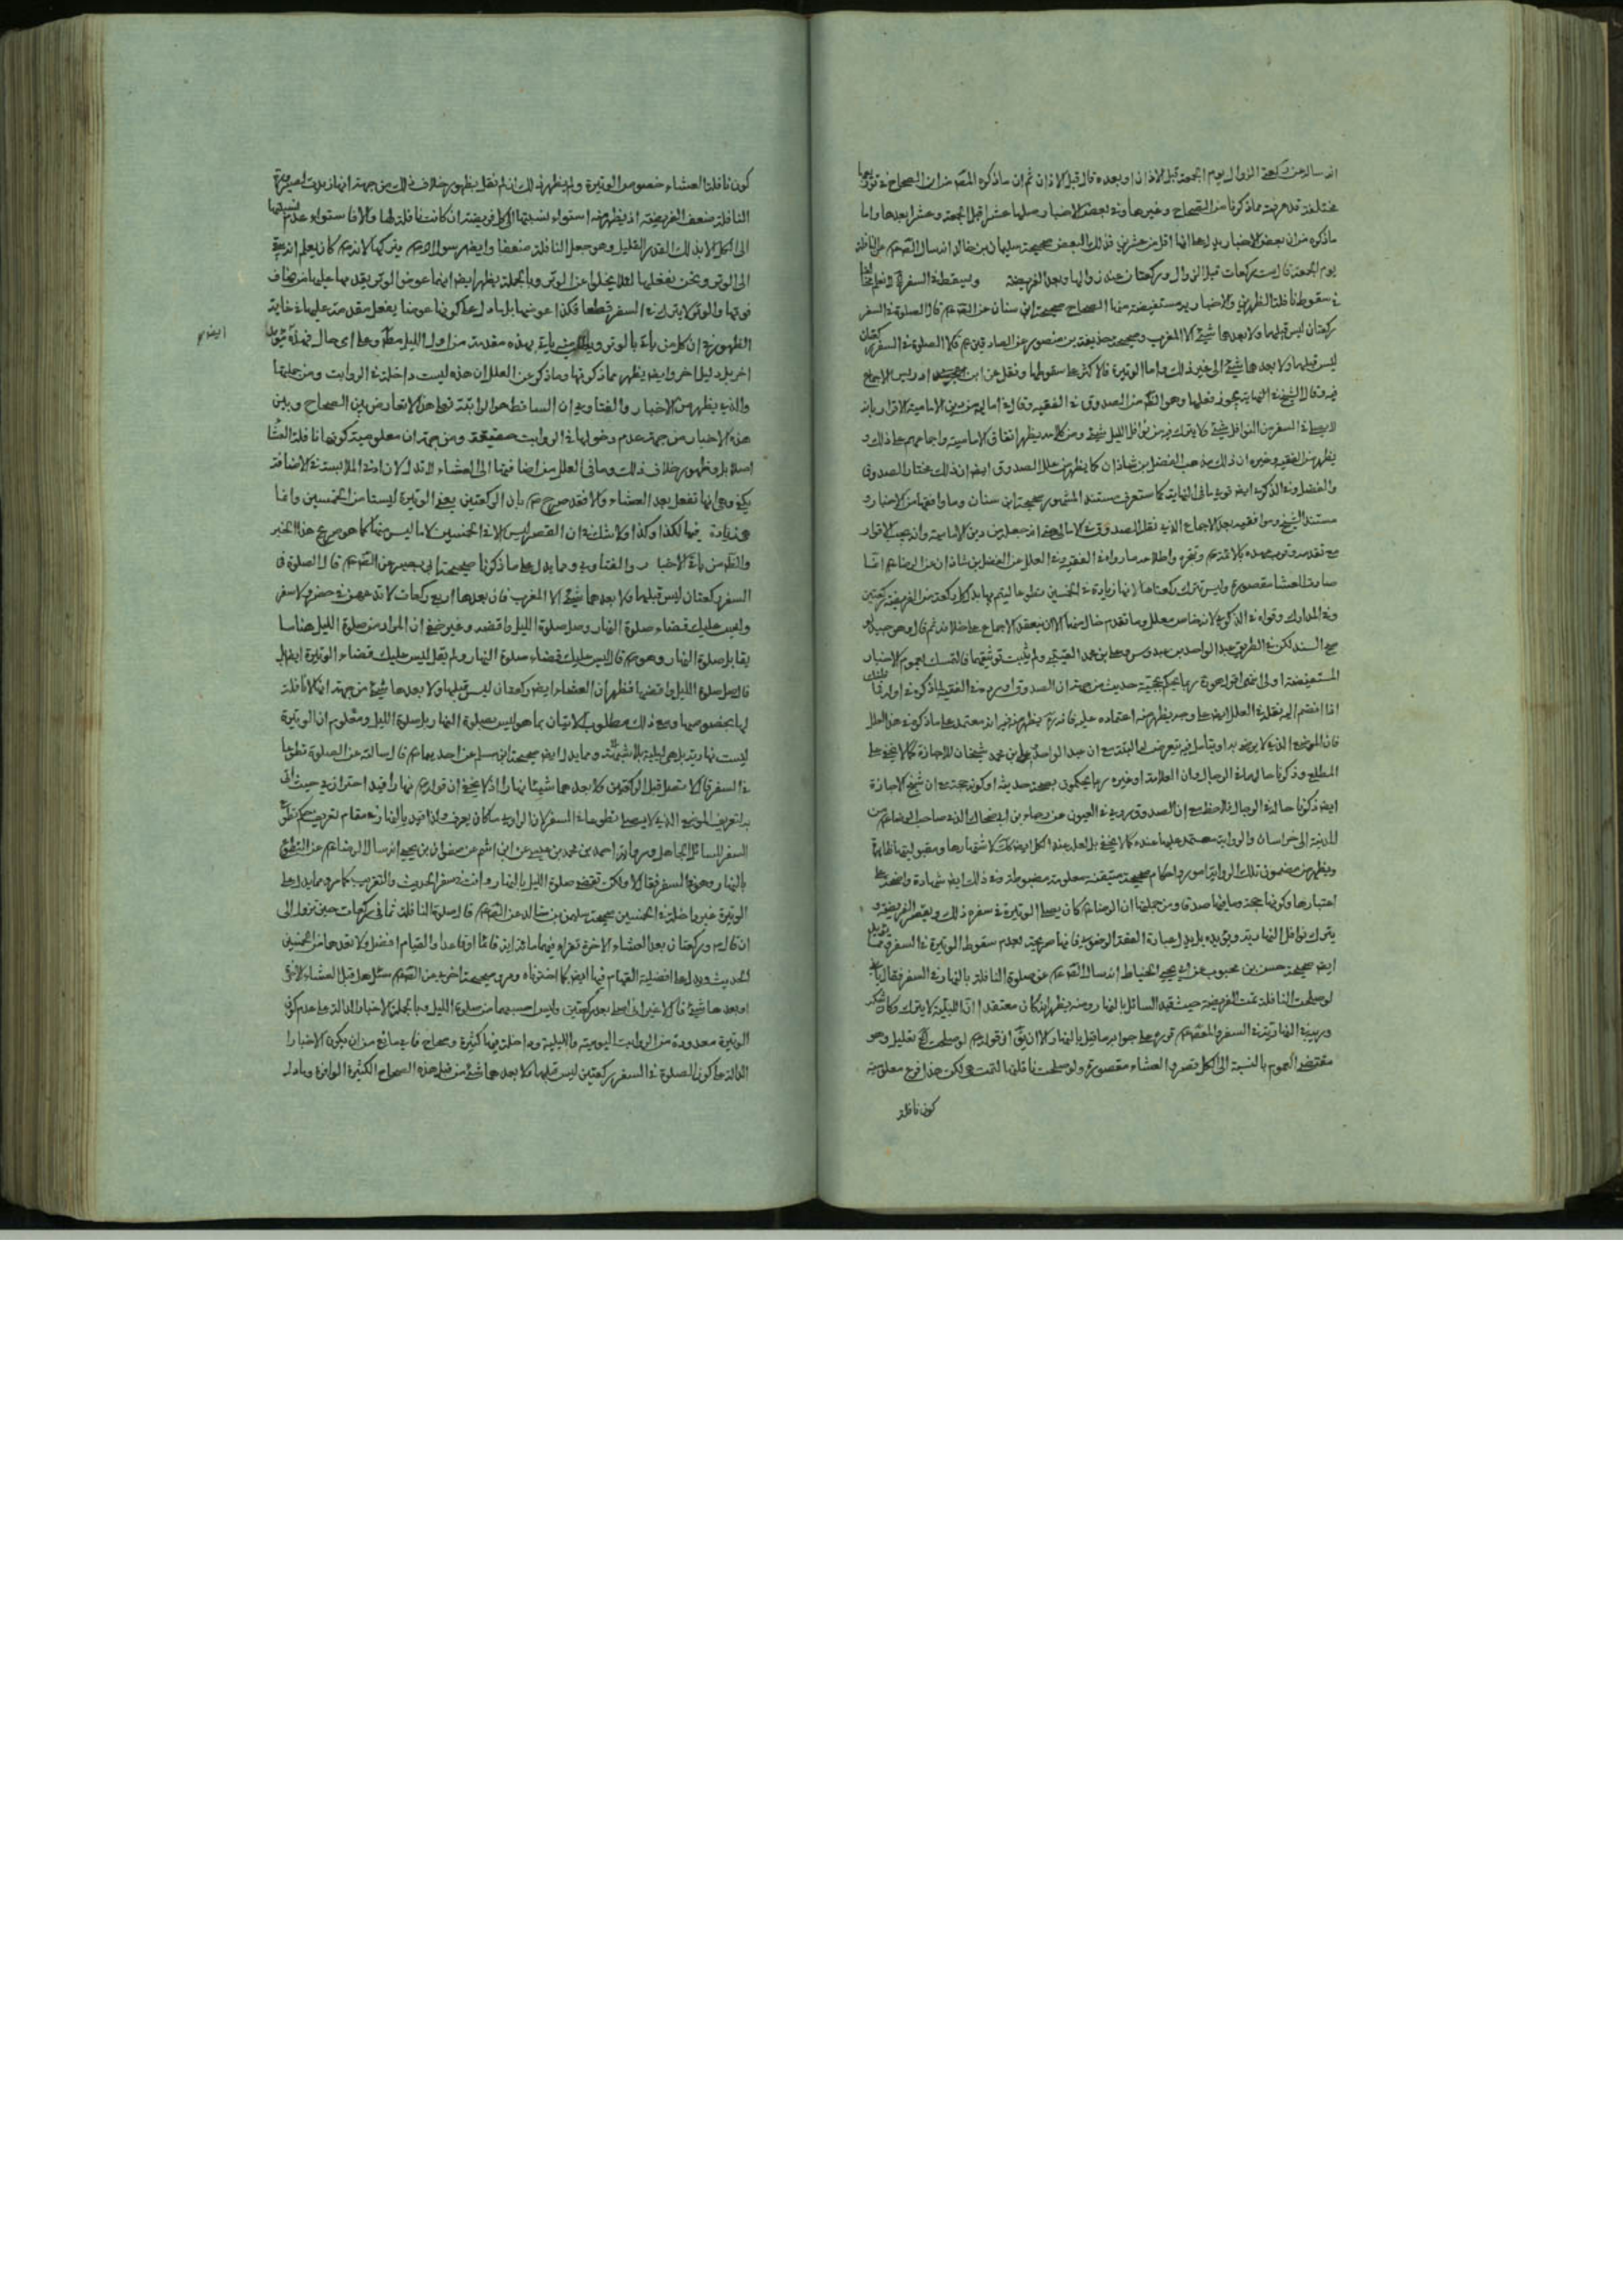 انه سأله عن ركعتي الزوال يوم الجمعة قبل الاذان او بعده قال قبل الاذان ثم ان ما ذكره المصّ من ان الصحاح في
مختلفة قد عرفته مما ذكرنا من الصحاح وغيرها وفي بعض الاخبار صلها عشرا قبل الجمعة وعشرا بعدها واما
ما ذكره من ان بعض الاخبار يدل على انها اقل من عشرين فذلك البعض صحيحة سليمان بن خالد انه سأل الصّ ع عن النافلة
يوم الجمعة قال ست ركعات قبل الزوال وركعتان عند زوالها وبعد الفريضة ويسقط في السفر
في سقوط نافلة الظهرين والاخبار به مستفيضة منها الصحاح صحيحة ابن سنان عن الصّ ع قال الصلوة في السفر
ركعتان ليس قبلهما ولا بعدهما شئ الا المغرب وصحيحة حذيفة بن منصور عن الصادقين ع قالا الصلوة في السفر ركعتان
ليس قبلهما ولا بعدهما شئ الى غير ذلك واما الوتيرة فالاكثر على سقوطها ونقل عن ابن ادريس الاجماع
فيه وقال الشيخ في النهاية يجوز فعلها وهو الظّ من الصدوق في الفقيه وقال في اماليه من دين الامامية الاقرار بانه
لا يسقط في السفر من النوافل شئ ولا يترك فيه من نوافل الليل شئ ومن كلامه يظهر اتفاق الامامية واجماعهم على ذلك و
يظهر من الفقيه وغيره ان ذلك مذهب الفضل بن شاذان كما يظهر من علل الصدوق ايض ان ذلك مختار الصدوق
والفضل وفي الذكرى ايض قوى ما في النهاية كما ستعرف مستند المشهور صحيحة ابن سنان وما وافقها من الاخبار و
مستند الشيخ وموافقيه بعد الاجماع الذي نقل الصدوق في الامالي حتى انه جعل من دين الامامية وانه يجب الاقرار
مع تقدمه وقرب عهده بالائمة ع وتبحره واطلاعه ما رواه في الفقيه وفي العلل عن الفضل بن شاذان عن الرضا ع انما
صارت العشا مقصورة وليس تترك ركعتاها لانها زيادة في الخمسين تطوعا ليتم بها بدل كل ركعة من الفريضة ركعتين
وفي المدارك وقواه في الذكرى لانه خاص معلل وما تقدم خال منها الا ان ينعقد الاجماع على خلافه ثم قال وهو جيد لو
صح السند لكن في الطريق عبد الواحد بن عبدوس وعلي بن محمد القتيبي ولم يثبت توثيقهما فالتمسك بعموم الاخبار
المستفيضة اولى انتهى اقول
اذا انضم اليه نقله في العلل ايض على وجه يظهر منه اعتماده عليه فانه يظهر منه غير انه معتمد على ما ذكره في هذا العلل
فان الموضع الذي لا يرضى به او يتأمل فيه يتعرض له البتة مع ان عبد الواحد وعلي بن محمد شيخان للاجازة كما لا يخفى على
المطلع وذكرنا حالهما في الرجال وان العلامة وغيره ربما يحكمون بصحة حديثه او كونه حجة مع ان شيخ الاجازة
ايض ذكرنا حاله في الرجال فلاحظ مع ان الصدوق يروى في العيون عن رجاء بن ابي ضحاك الذي صاحب الرضا ع من
المدينة الى خراسان والرواية معتمد عليها عنده كما لا يخفى بل لعله عند الكل ايض كك لاشتهارها ومقبوليتها ظاهرا
ويظهر من مضمون تلك الرواية امور واحكام صحيحة متيقنة معلومة مضبوطة وفي ذلك ايض شهادة واضحة على
اعتبارها وكونها حجة وما فيها صدقا ومن جملتها ان الرضا ع كان يصلي الوتيرة في سفره ذلك ويقصر الفريضة و
يترك نوافل النهارية ويؤيده بل يدل عبارة الفقه الرضوي فانها صريحة بعدم سقوط الوتيرة في السفر
ايض صحيحة حسن بن محبوب عن ابي يحيى الحناط انه سأل الصّ ع عن صلوة النافلة بالنهار في السفر فقال يا بني
لو صلحت النافلة تمت الفريضة حيث قيد السائل بالنهار ومنه يظهر انه كان معتقدا ان الليلية لا يترك وكان
والمعصوم ع قرره على جوابه ما قيل بالنهار الا ان يقّ ان قوله ع لو صلحت الخ تعليل وهو
مقتضى العموم بالنسبة الى الكل قصر والعشاء مقصورة ولو صلحت نافلتها لتمت لكن هذا فرع معلومية
كون نافلة
كون نافلة العشاء خصوص الوتيرة ولم يظهر ذلك ان لم نقل بظهور خلاف ذلك من جهة انها زيدت
النافلة ضعف الفريضة اذ يظهر منه استواء نسبتها الى كل فريضة ان كانت نافلة لها والا فاستواء عدم نسبتها
الى الكل الا بذلك القدر القليل وهو جعل النافلة ضعفا وايض رسول الله ص لم يتركها لانه ص كان يعلم انه
الى الوتر ونحن نفعلها لئلا يخلوا عن الوتر وبالجملة يظهر ايض انها عوض الوتر يقدمها عليها من مخاف
فوتها والوتر لا يترك في السفر قطعا فكذا عوضها بل ما دل على كونها عوضا يفعل مقدمة عليها في غاية
الظهور في ان كل من يأت بالوتر يأت بهذه مقدمة من اول الليل مطّ وعلى اى حال
ايضا م
اخر بل دليل اخر وايض يظهر مما ذكرنا وما ذكر عن العلل ان هذه ليست داخلة في الرواتب ومن جملتها
والذي يظهر من الاخبار والفتاوى ان الساقط هو الراتبة فعلى هذا لا تعارض بين الصحاح وبين
هذه الاخبار من جهة عدم دخولها في الرواتب حقيقة ومن جهة ان معلومية كونها نافلة العشا
اصلا بل وظهور خلاف ذلك وما في العلل من اضافتها الى العشاء لا تدل لان ادنى الملابسة في الاضافة
يكفي وهي انها تفعل بعد العشاء والا فقد صرح ع بان الركعتين يعني الوتيرة ليستا من الخمسين وانما
هي زيادة فيها لكذا وكذا ولا شك في ان القصر ليس الا في الخمسين لا ما ليس منها كما هو صريح هذا الخبر
والظّ من باقي الاخبار والفتاوى ومما يدل على ما ذكرنا صحيحة ابي بصير عن الصّ ع قال الصلوة في
السفر ركعتان ليس قبلهما ولا بعدهما شئ الا المغرب فان بعدها اربع ركعات لا تدعهن في حضر ولا سفر
وليس عليك قضاء صلوة النهار وصل صلوة الليل واقضه وغير خفي ان المراد من صلوة الليل هنا ما
يقابل صلوة النهار وهو ع قال ليس عليك قضاء صلوة النهار ولم يقل ليس عليك قضاء الوتيرة ايض بل
قال صل صلوة الليل واقضها فظهر ان العشاء ايض ركعتان ليس قبلها ولا بعدها شئ من جهة انه لا نافلة
لها بخصوصها ومع ذلك مطلوب الاتيان بما هو ليس بصلوة النهار بل صلوة الليل ومعلوم ان الوتيرة
ليست نهارية بل هي ليلية بلا شبهة ومما يدل ايض صحيحة ابن مسلم عن احدهما ع قال سألته عن الصلوة تطوعا
في السفر قال لا تصل قبل الركعتين ولا بعدهما شيئا نهارا اذ لا يخفى ان قوله ع نهارا قيد احترازي حيث اتى
به لتعريف الموضع الذي لا يصلي تطوعا في السفر لان الراوي ما كان يعرف ولذا قيد بالنهار في مقام تعريف حكم تطوع
السفر للسائل الجاهل ومر ما رواه احمد بن محمد بن عيسى عن ابن اشيم عن صفوان بن يحيى انه سأل الرضا ع عن التطوع
بالنهار وهو في السفر فقال لا ولكن تقضي صلوة الليل بالنهار وانت في سفر الحديث والتقريب كما مر ومما يدل على
الوتيرة غير داخلة في الخمسين صحيحة سليمن بن خالد عن الصّ ع قال صلوة النافلة ثماني ركعات حين تزول الى
ان قال ع وركعتان بعد العشاء الاخرة تقرء فيهما مائة اية قائما او قاعدا والقيام افضل ولا تعدهما من الخمسين
الحديث ويدل على افضلية القيام فيها ايض كما اخترناه ومر وصحيحة اخرى عن الصّ ع سئل هل قبل العشاء الاخرة
او بعدها شئ قال لا غير اني اصلي بعدها ركعتين وليس احسبهما من صلوة الليل وبالجملة الاخبار الدالة على عدم كون
الوتيرة معدودة من الرواتب اليومية والليلية وداخلة فيها كثيرة وصحاح فاي مانع من ان يكون الاخبار
الدالة على كون الصلوة في السفر ركعتين ليس قبلهما ولا بعدهما شئ من قبل هذه الصحاح الكثيرة الوافرة وما دل